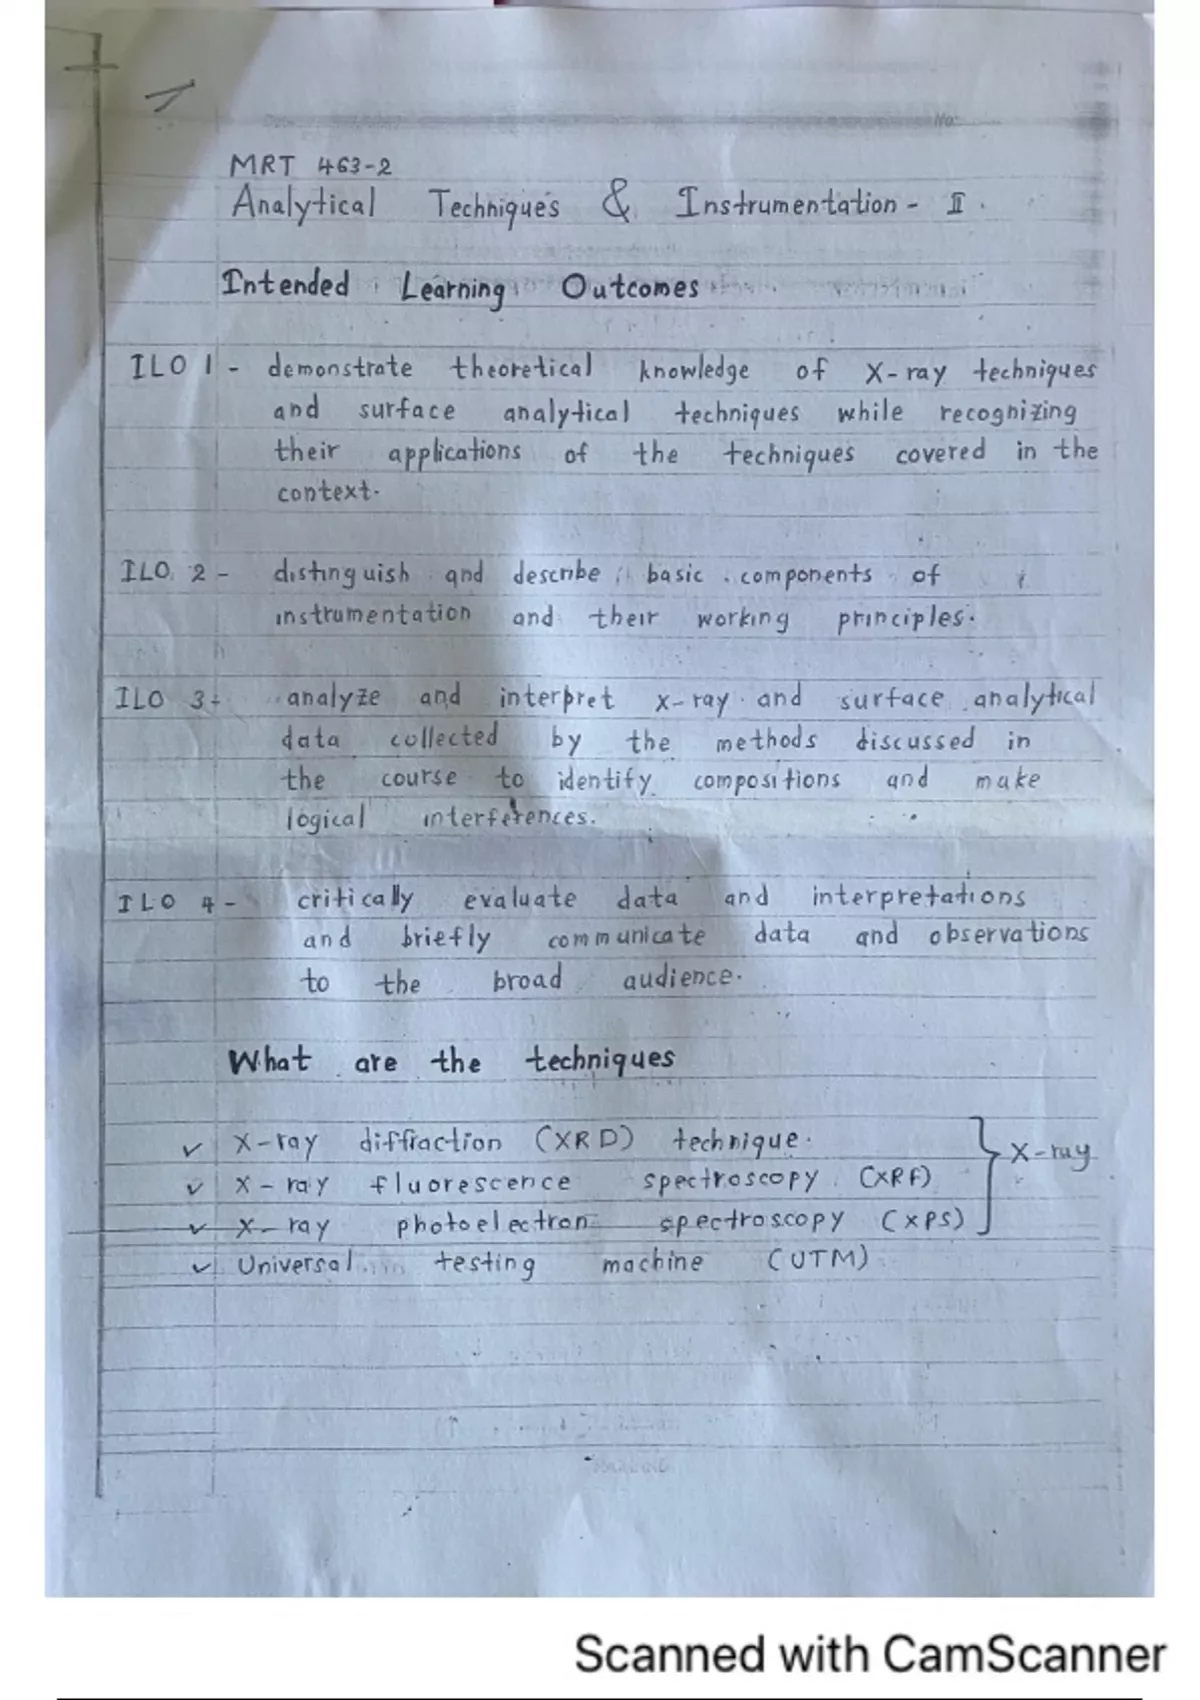 No:
MRT 463-2
Analytical Techniques & Instrumentation - II.
Intended Learning Outcomes
ILO 1 - demonstrate theoretical knowledge of X-ray techniques
and surface analytical techniques while recognizing
their applications of the techniques covered in the
context.
ILO 2 - distinguish and describe basic components of
instrumentation and their working principles.
ILO 3 - analyze and interpret x-ray and surface analytical
data collected by the methods discussed in
the course to identify compositions and make
logical interferences.
ILO 4 - critically evaluate data and interpretations
and briefly communicate data and observations
to the broad audience.
What are the techniques
✓ X-ray diffraction (XRD) technique.
✓ X-ray fluorescence spectroscopy (XRF)
✓ X-ray photoelectron spectroscopy (XPS)
} X-ray
✓ Universal testing machine (UTM)
Scanned with CamScanner